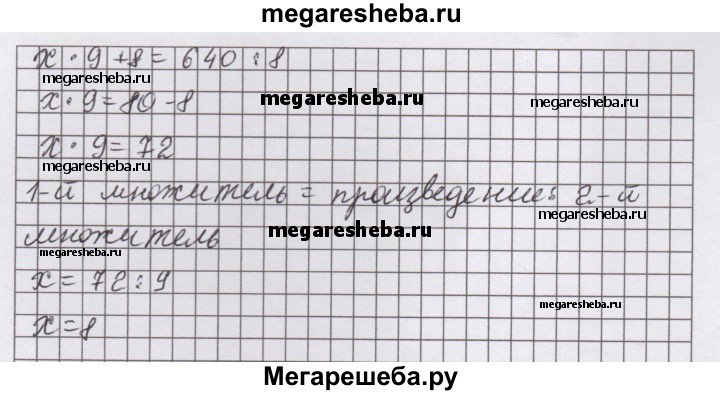 megaresheba.ru
x · 9 + 8 = 640 : 8
megaresheba.ru
x · 9 = 80 - 8
megaresheba.ru
megaresheba.ru
x · 9 = 72
megaresheba.ru
1-й множитель = произведение : 2-й
megaresheba.ru
множитель
megaresheba.ru
megaresheba.ru
x = 72 : 9
megaresheba.ru
x = 8
Мегарешеба.ру